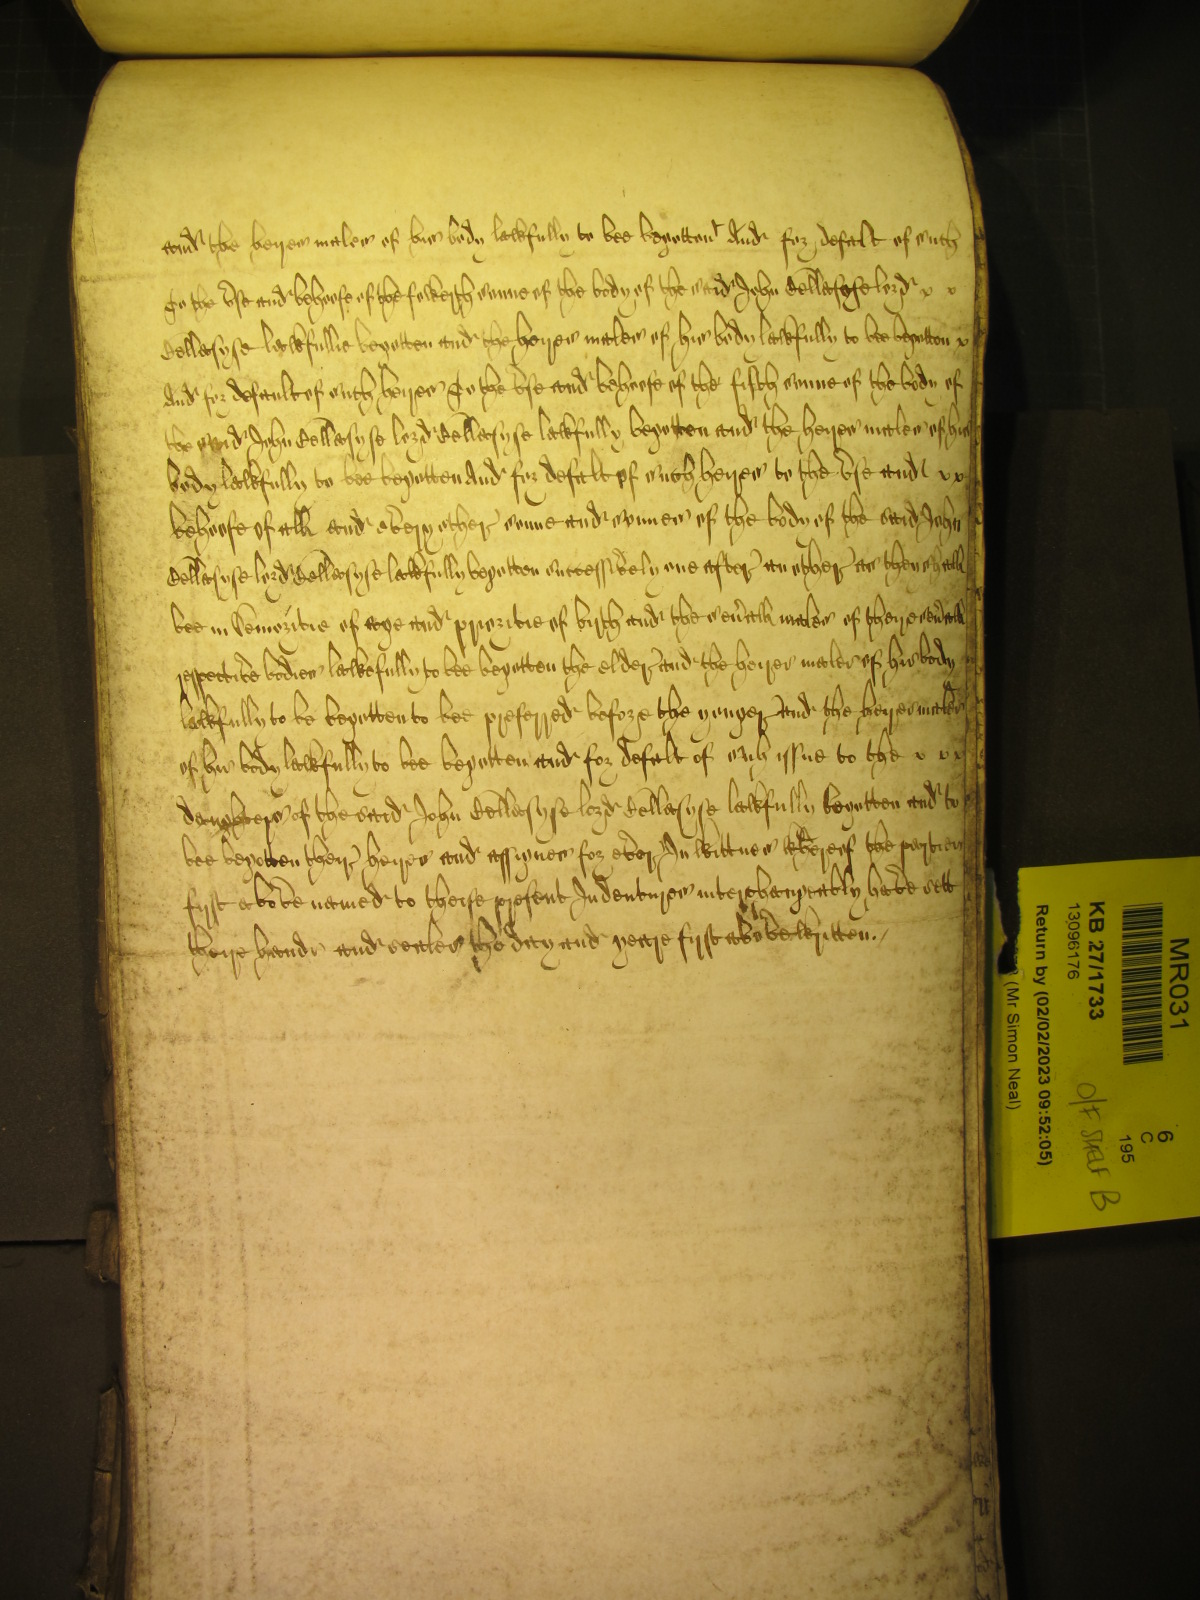 and the heyres males of his body lawfully to bee begotten And for defalt of such
To the vse and behoofe of the fowerth sonne of the body of the said John Bellasyse lord x x
Bellasyse lawfullie begotten and the heyres males of his body lawfully to bee begotten x
And for default of such heyres To the vse and behoofe of the fifth sonne of the body of
the said John Bellasyse lord Bellasyse lawfully begotten and the heyres males of his
body lawfully to bee begotten And for defalt of such heyres to the vse and x x
behoofe of all and every other sonne and sonnes of the body of the said John
Bellasyse lord Bellasyse lawfully begotten successively one after another as they shall
bee in Senioritie of age and prioritie of birth and the seu'all males of theyre seu'all
respective bodies lawfully to bee begotten the elder and the heyres males of his body
lawfully to be begotten to bee preferred before the yonger and the heyres males
of his body lawfully to bee begotten and for defalt of such issue to the x x x
daughters of the said John Bellasyse lord Bellasyse lawfully begotten and to
bee begotten theyr heyres and assignes for ever In wittnes whereof the parties
first above named to theise present Indentures interchangeably have sett
theyr hands and seales the day and yeare first above written./
MR031
KB 27/1733
13096176
Return by (02/02/2023 09:52:05)
(Mr Simon Neal)
6
C
195
O/F Shelf B